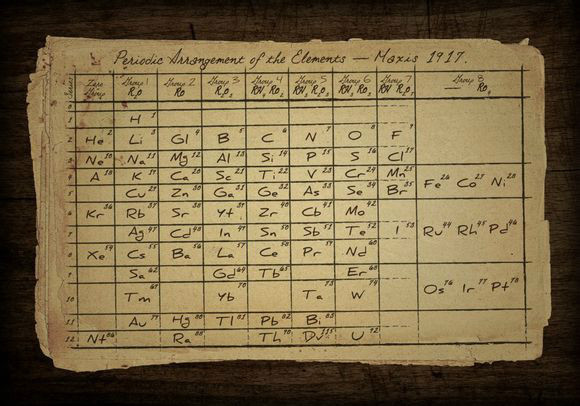 Periodic Arrangement of the Elements — Maxis 1917.
Series Zero Group Group 1 R₂O Group 2 RO Group 3 R₂O₃ Group 4 RH₄ RO₂ Group 5 RH₃ R₂O₅ Group 6 RH₂ RO₃ Group 7 RH R₂O₇ Group 8 RO₄
0
1 H 1
2 He 2 Li 3 Gl 4 B 5 C 6 N 7 O 8 F 9
3 Ne 10 Na 11 Mg 12 Al 13 Si 14 P 15 S 16 Cl 17
4 A 18 K 19 Ca 20 Sc 21 Ti 22 V 23 Cr 24 Mn 25 Fe 26 Co 27 Ni 28
5 Cu 29 Zn 30 Ga 31 Ge 32 As 33 Se 34 Br 35
6 Kr 36 Rb 37 Sr 38 Yt 39 Zr 40 Cb 41 Mo 42 Ru 44 Rh 45 Pd 46
7 Ag 47 Cd 48 In 49 Sn 50 Sb 51 Te 52 I 53
8 Xe 54 Cs 55 Ba 56 La 57 Ce 58 Pr 59 Nd 60
9 Sa 62 Gd 64 Tb 65 Er 68
10 Tm 69 Yb 70 Ta 73 W 74 Os 76 Ir 77 Pt 78
11 Au 79 Hg 80 Tl 81 Pb 82 Bi 83
12 Nt 86 Ra 88 Th 90 DV 115 U 92